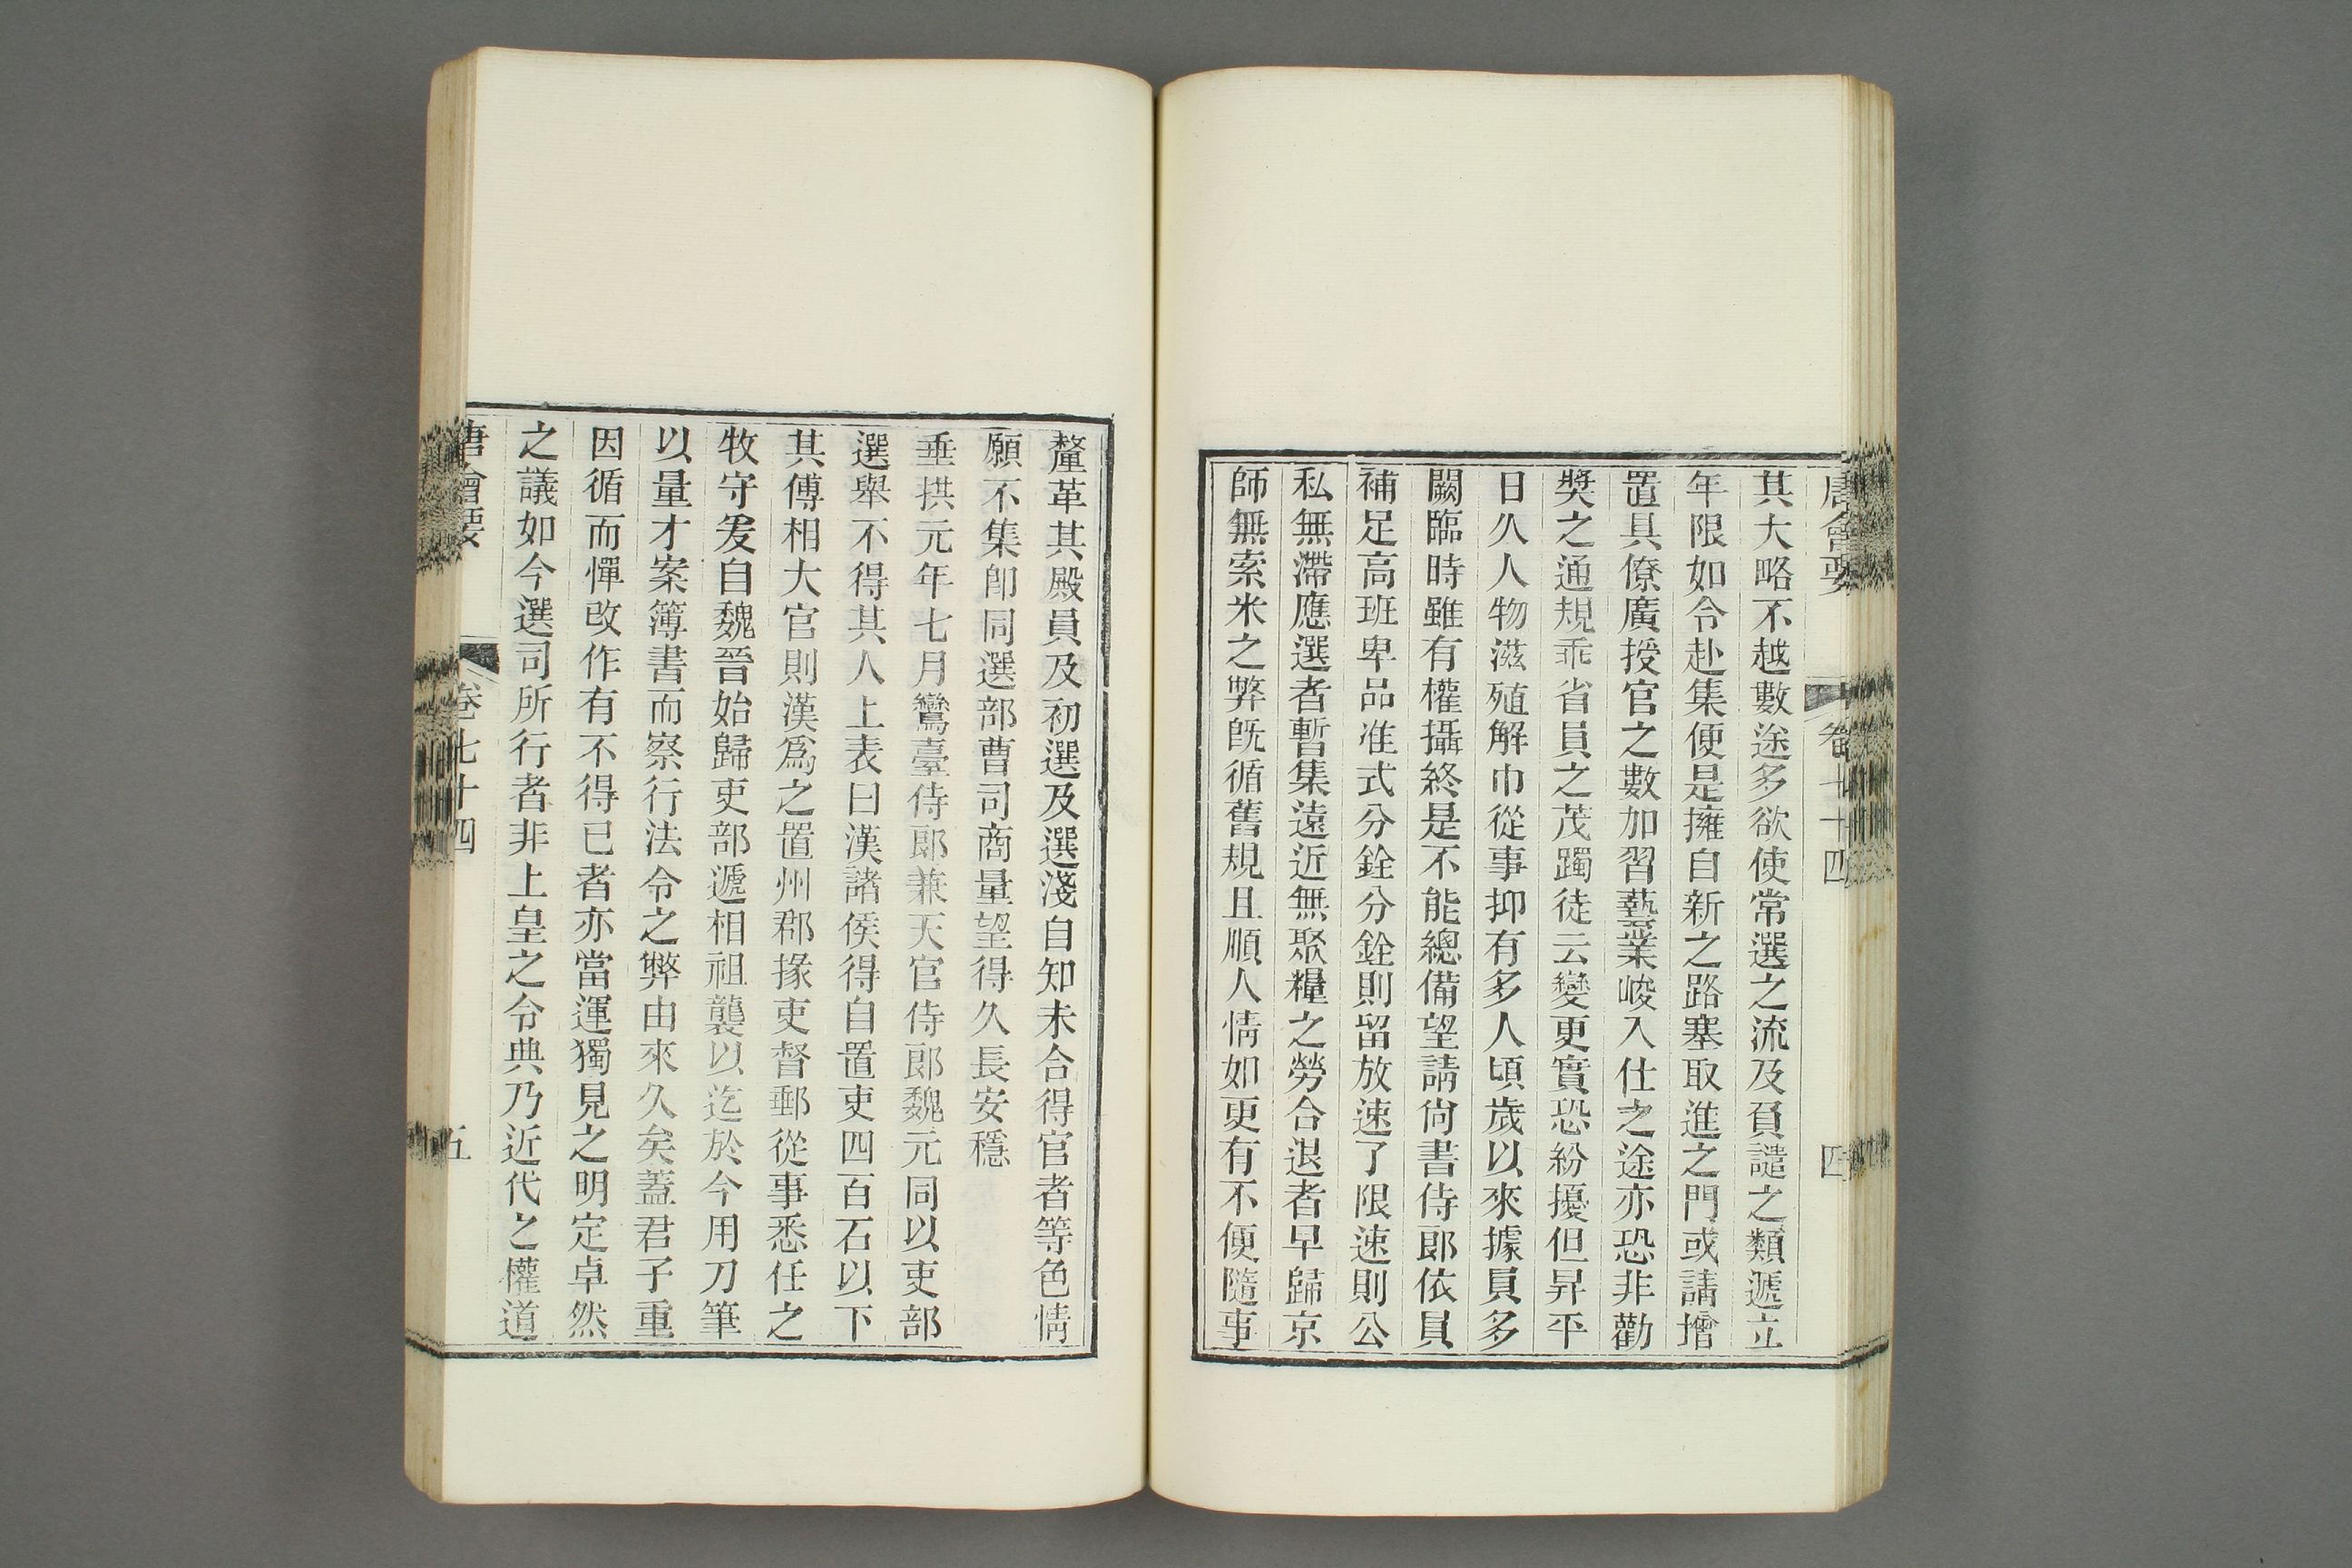 唐會要 卷七十四 四
其大略不越數途多欲使常選之流及負譴之類遞立
年限如令赴集便是擁自新之路塞取進之門或請增
置具僚廣授官之數加習藝業峻入仕之途亦恐非勸
獎之通規乖省員之茂躅徒云變更實恐紛擾但昇平
日久人物滋殖解巾從事抑有多人頃歲以來據員多
闕臨時雖有權攝終是不能總備望請尚書侍郎依員
補足高班卑品准式分銓分銓則留放速了限速則公
私無滯應選者暫集遠近無聚糧之勞合退者早歸京
師無索米之弊旣循舊規且順人情如更有不便隨事
釐革其殿員及初選及選淺自知未合得官者等色情
願不集卽同選部曹司商量望得久長安穩
垂拱元年七月鸞臺侍郎兼天官侍郎魏元同以吏部
選舉不得其人上表曰漢諸侯得自置吏四百石以下
其傅相大官則漢爲之置州郡掾吏督郵從事悉任之
牧守爰自魏晉始歸吏部遞相祖襲以迄於今用刀筆
以量才案簿書而察行法令之弊由來久矣蓋君子重
因循而憚改作有不得已者亦當運獨見之明定卓然
之議如今選司所行者非上皇之令典乃近代之權道
唐會要 卷七十四 五